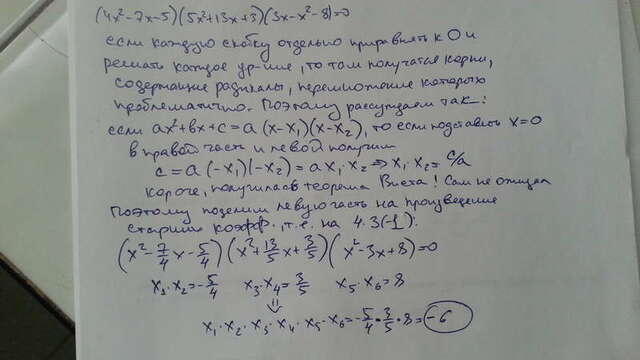 (4x²-7x-5)(5x²+13x+3)(3x-x²-8)=0
если каждую скобку отдельно приравнять к 0 и
решать каждое ур-ние, то там получатся корни,
содержащие радикалы, перемножение которых
проблематично. Поэтому рассуждаем так:
если ax²+bx+c=a(x-x₁)(x-x₂), то если подставить x=0
в правой часть и левой получим
c=a(-x₁)(-x₂)=ax₁·x₂ ⇒ x₁·x₂=c/a
Короче, получилась теорема Виета! Сам не ожидал
Поэтому поделим левую часть на произведение
старших коэфф., т.е. на 4·3(-1):
(x²-7/4x-5/4)(x²+13/5x+3/5)(x²-3x+8)=0
x₁·x₂=-5/4 x₃·x₄=3/5 x₅·x₆=8
⇓
x₁·x₂·x₃·x₄·x₅·x₆=-5/4·3/5·8=-6